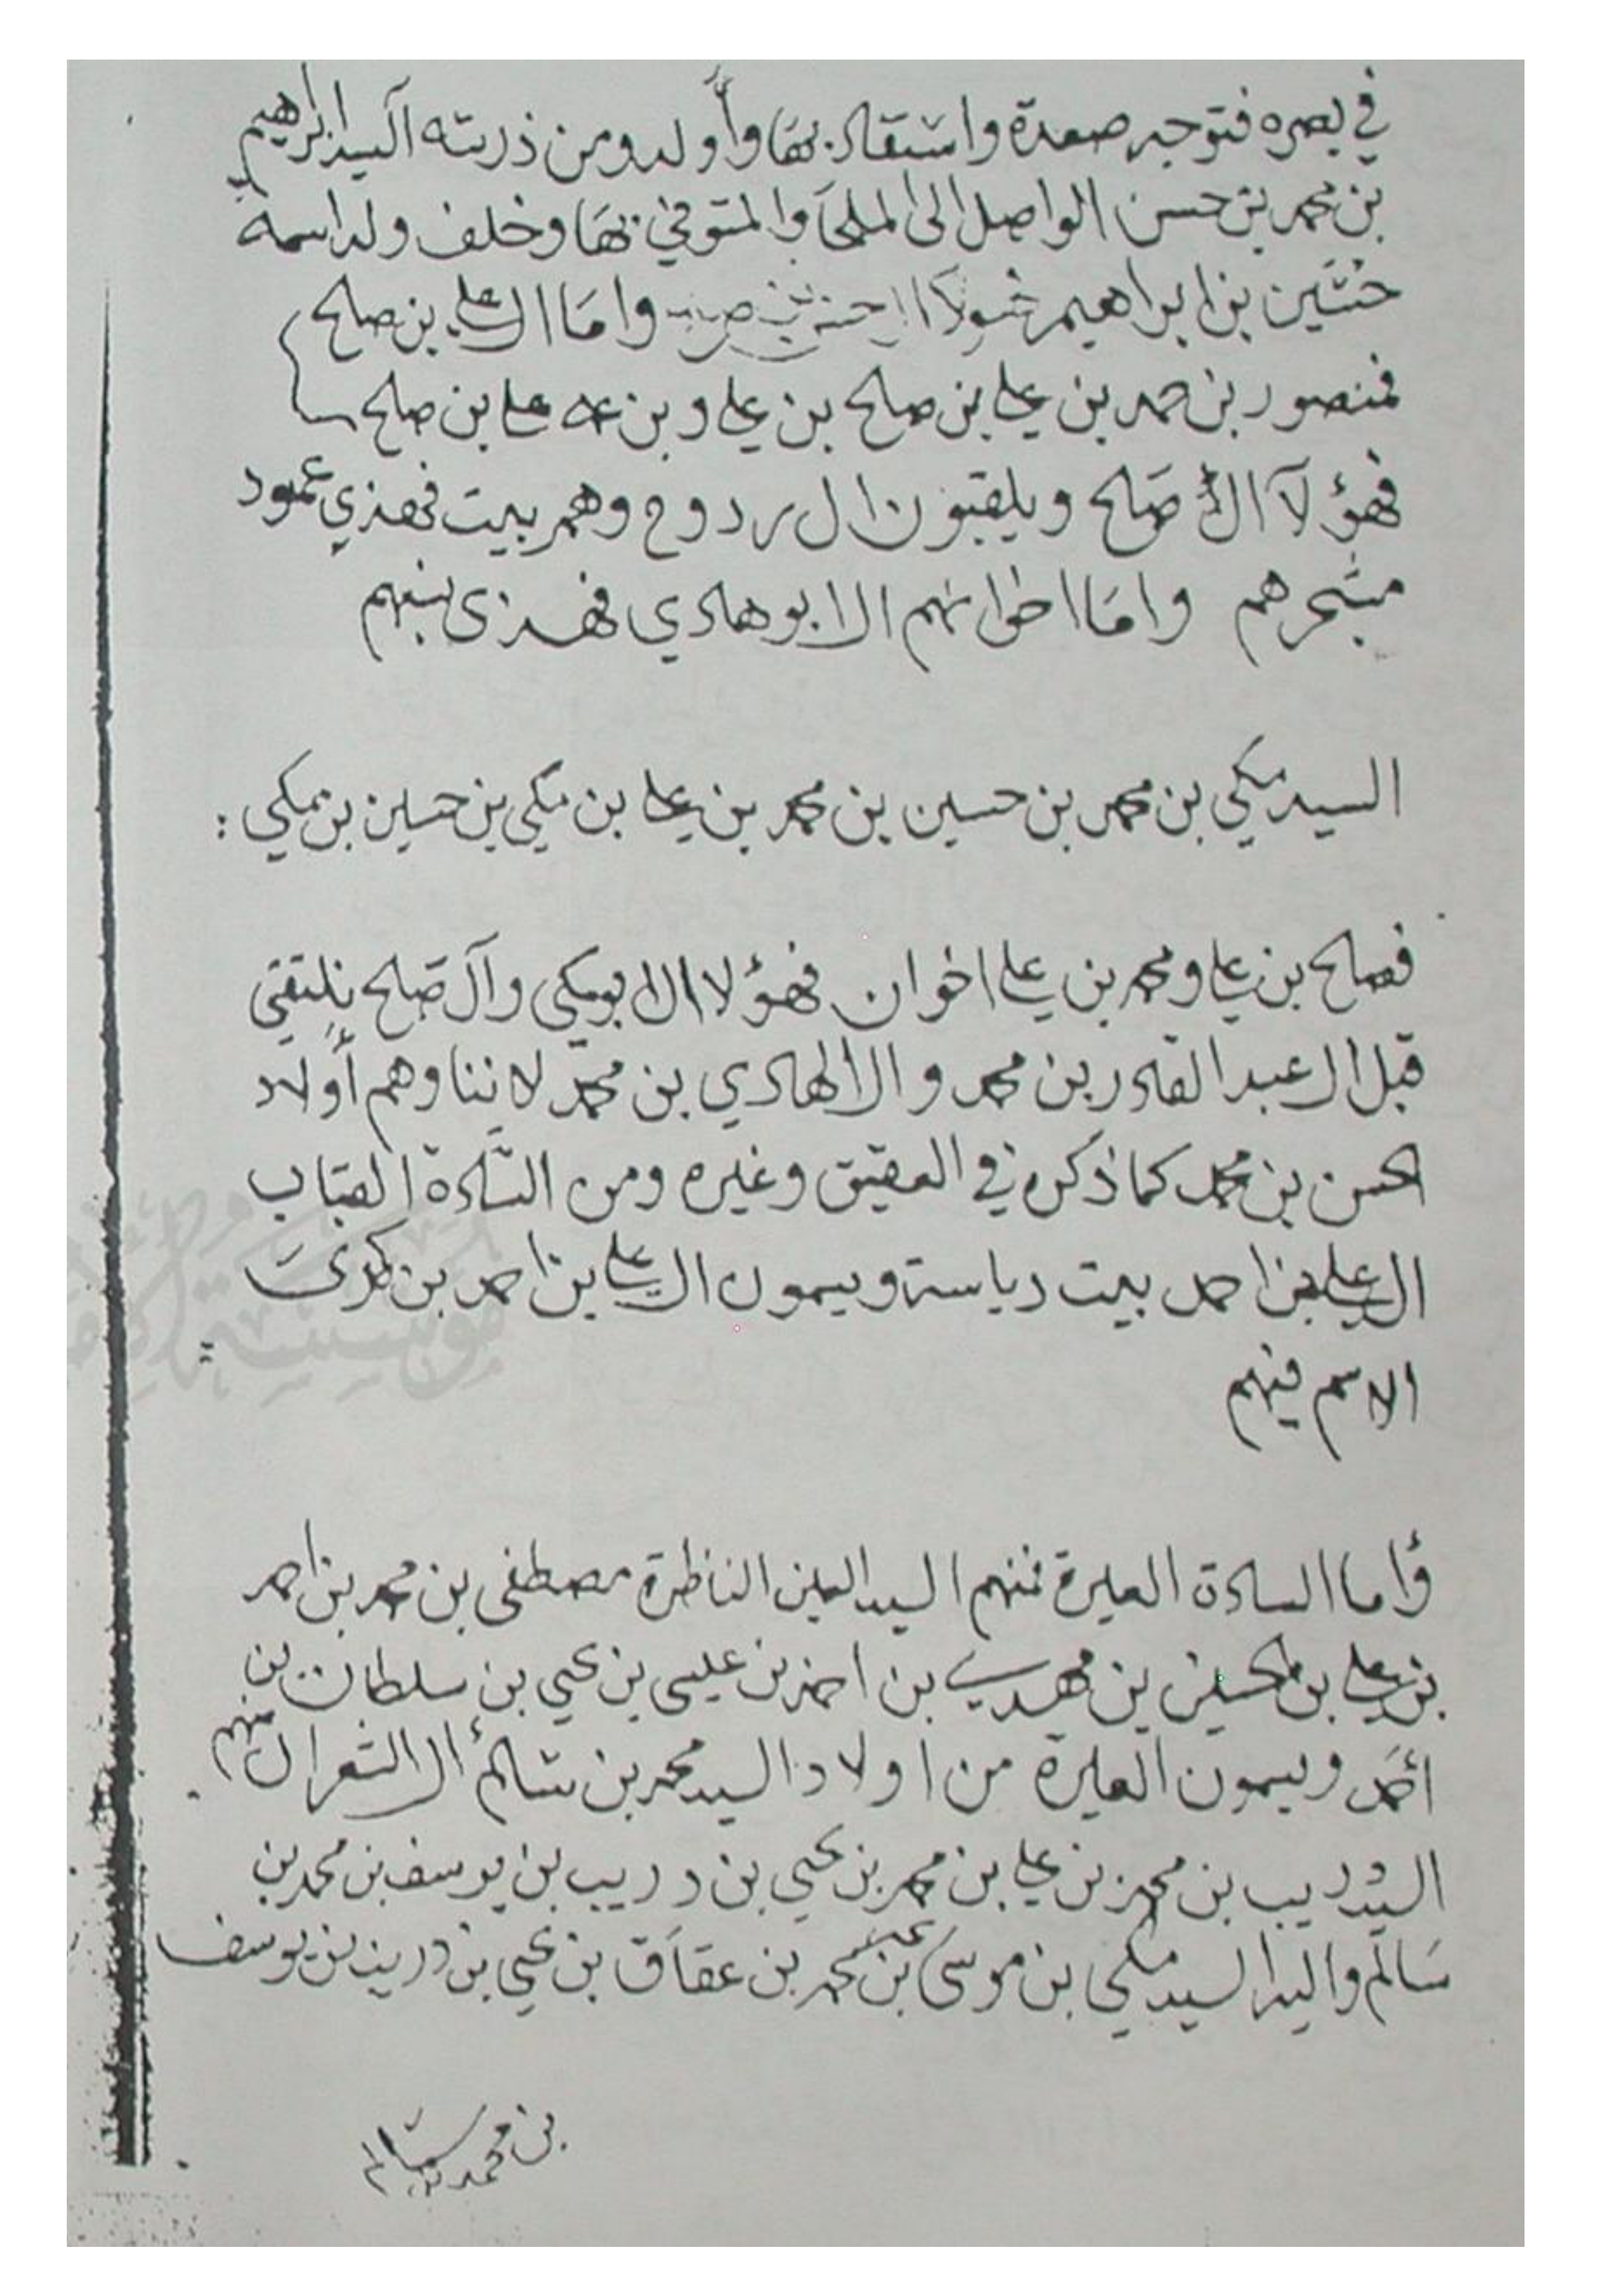 في بصره فتوجه صعدة واستقاد بها وأولد ومن ذريته السيد ابراهيم
بن محمد بن حسن الواصل الى الملحا والمتوفي بها وخلف ولد اسمه
حسين بن ابراهيم وامّا ال علي بن صلح
فمنصور بن حمد بن علي بن صلح بن علي وبن عمه علي بن صلح
فهؤلآ ال صلح ويلقبون ال ردوح وهم بيت فهذي عمود
مشجرهم وامّا اخوانهم ال ابو هادي فهذى نسبهم
السيد مكي بن محمد بن حسين بن محمد بن علي بن مكي بن حسين بن مكي :
فصلح بن علي ومحمد بن علي اخوان فهؤلا ال ابو مكي وآل صلح نلتقي
قبل ال عبد القادر بن محمد وال الهادي بن محمد لاننا وهم أولاد
الحسن بن محمد كما ذكره في العقيق وغيره ومن السّادة القباب
ال علي بن احمد بيت رياسة ويسمون ال علي بن احمد بن
الاسم فيهم
وأما السادة العليرة فمنهم السيد العين الناظرة مصطفى بن محمد بن احمد
بن علي بن الحسين بن مهدي بن احمد بن عيسى بن يحيى بن سلطان بن
أحمد ويسمون العليرة من اولاد السيد محمد بن سالم ال الشعراء منهم
السيد دريب بن محمد بن علي بن محمد بن يحيى بن دريب بن يوسف بن محمد بن
سَالم والسيد مكي بن موسى بن محمد بن عقاق بن يحيى بن دريب بن يوسف
بن محمد بن سالم